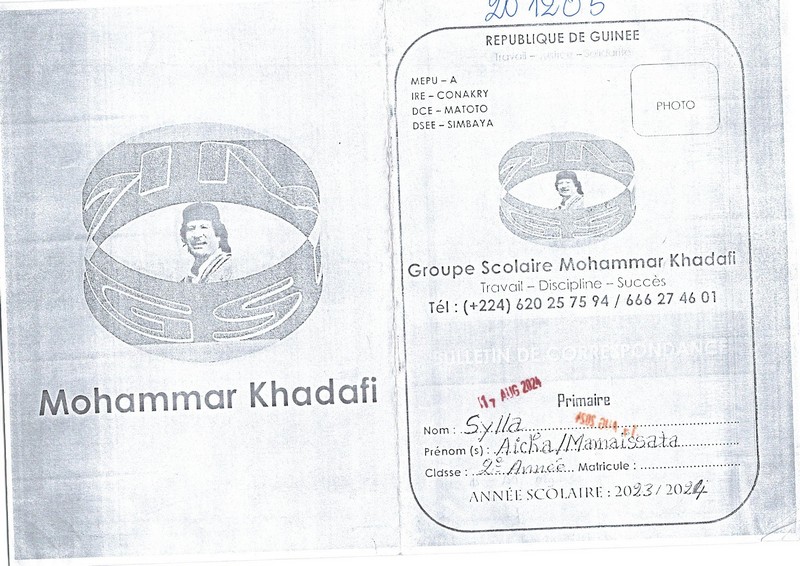 Mohammar Khadafi
201205
REPUBLIQUE DE GUINEE
Travail – Justice – Solidarité
MEPU – A
IRE – CONAKRY
DCE – MATOTO
DSEE – SIMBAYA
PHOTO
Groupe Scolaire Mohammar Khadafi
Travail – Discipline – Succès
Tél : (+224) 620 25 75 94 / 666 27 46 01
BULLETIN DE CORRESPONDANCE
17 AUG 2024
Primaire
Nom : Sylla
Prénom (s) : Aicha/Mamaissata
Classe : 2e Année Matricule :
ANNÉE SCOLAIRE : 2023/2024